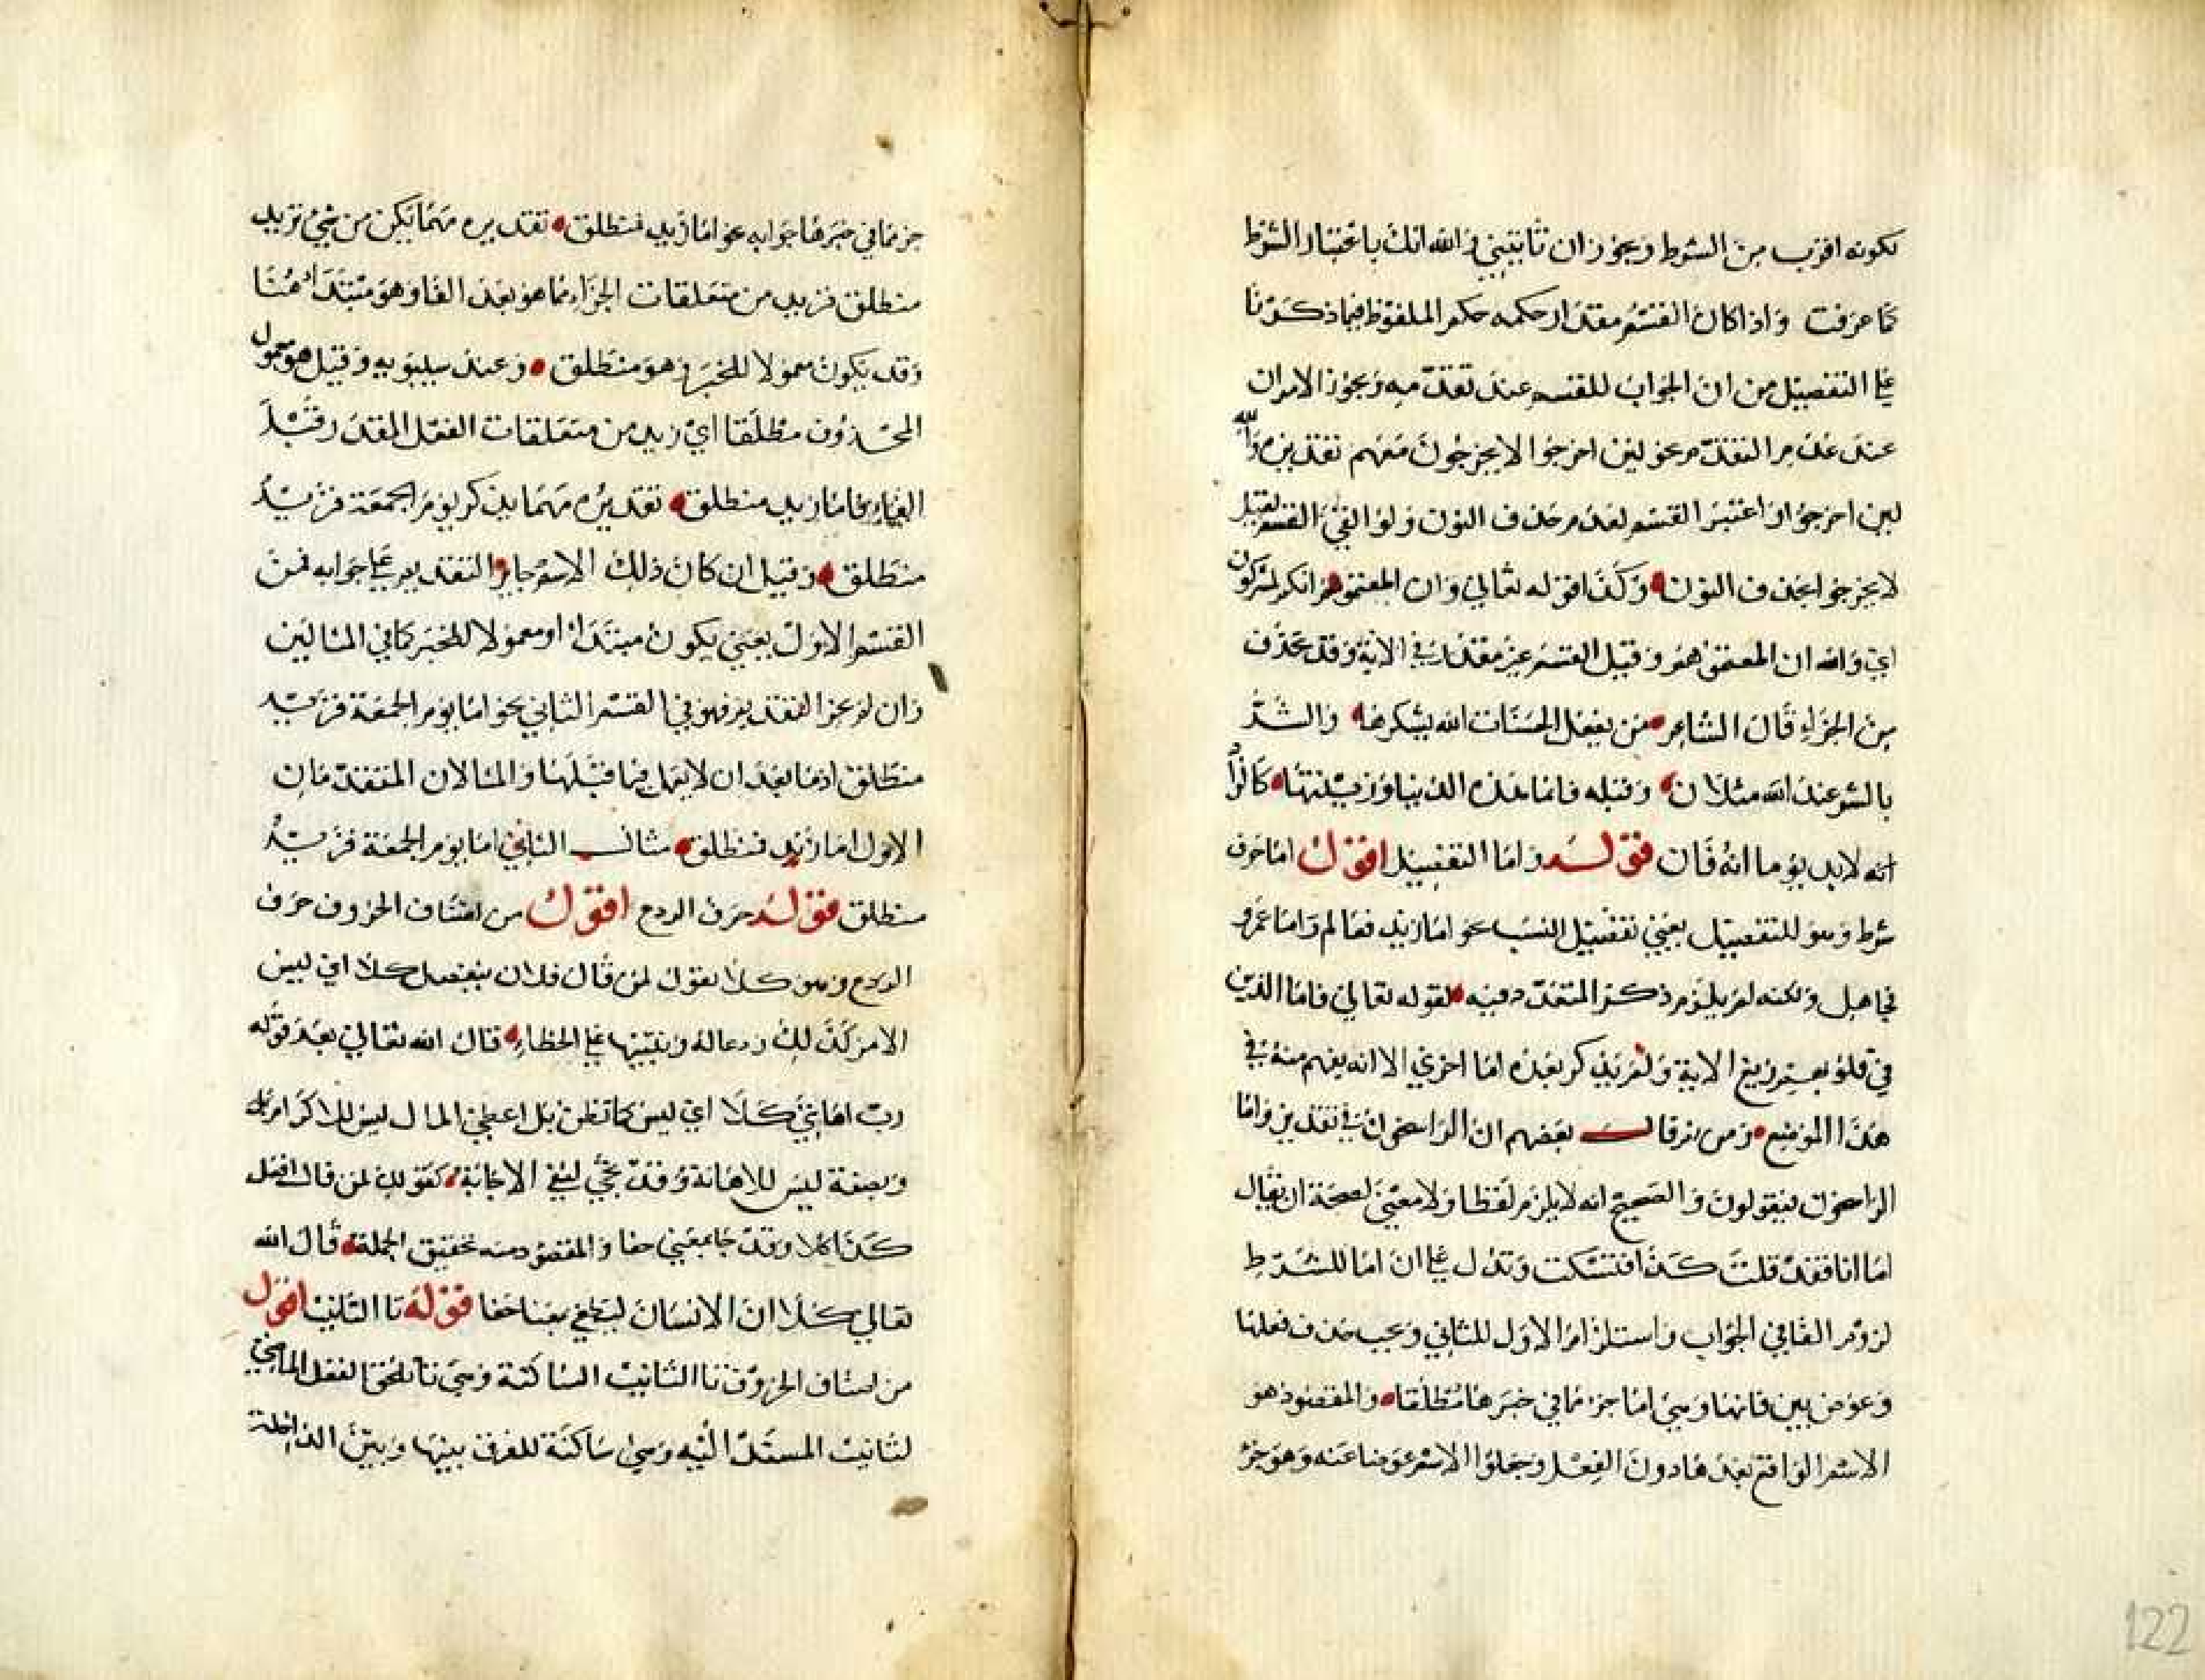 لكونه اقرب من الشرط ويجوز ان تاتيني والله اتك باعتبار الشرط
كما عرفت واذا كان القسم مقدرا حكمه حكم الملفوظ فيما ذكرنا
علي التفصيل من ان الجواب للقسم عند تقدمه ويجوز الامران
عند عدم التقدم نحو لئن اخرجوا لا يخرجون معهم تقديره والله
لئن اخرجوا اذا اعتبر القسم لعدم حذف النون ولو القسم لقيل
لا يخرجوا بحذف النون وكذا قوله تعالي وان اطعتموهم انكم لمشركون
اي والله ان اطعتموهم وقيل القسم غير مقدر في الاية وقد تحذف
من الجزاء قال الشاعر من يفعل الحسنات الله يشكرها والشر
بالشر عند الله مثلان وقبله فانما هذه الدنيا وزينتها كالزا
انه لابد يوما انه فان قوله واما التفصيل اقول اما حرف
شرط وهو للتفصيل يعني تفصيل النسب نحو اما زيد فعالم واما عمرو
فجاهل ولكنه لم يلزم ذكر المتعدد فيه لقوله تعالي فاما الذين
في قلوبهم زيغ الاية ولم يذكر بعده اما اخري الا انه يفهم منه في
هذا الموضع ومن ثم قال بعضهم ان الراسخون في تقدير واما
الراسخون فيقولون والصحيح انه لا يلزم لفظا ولا معني لصحة ان يقال
اما انا فقد قلت كذا فتسكت وتدل علي ان اما للشرط
لزوم الفا في الجواب واستلزام الاول للثاني ويجب حذف فعلها
وعوض بين فائها وبين اما جزء مما في خبرها مطلقا والمقصود هو
الاسم الواقع بعدها دون الفعل وجعلوا الاسم عوضا عنه وهو جزء
جزء مما في خبرها جوابه نحو اما زيد فمنطلق تقديره مهما يكن من شيء فزيد
منطلق فزيد من متعلقات الجزاء مما هو بعد الفا وهو مبتدا هنا
وقد يكون معمولا للخبر هو منطلق وعند سيبويه وقيل هو معمول
المحذوف مطلقا اي زيد من متعلقات الفعل المقدر قبل
الفاء فاما زيد منطلق تقديره مهما يذكر يوم الجمعة فزيد
منطلق وقيل ان كان ذلك الاسم جايز التقديم علي جوابه فمن
القسم الاول يعني يكون مبتدا او معمولا للخبر كما في المثالين
وان لم يجز التقديم فهو في القسم الثاني نحو اما يوم الجمعة فزيد
منطلق اذ ما بعد ان لا يعمل فيما قبلها والمثالان المتقدمان
الاول اما زيد فمنطلق مثال الثاني اما يوم الجمعة فزيد
منطلق قوله حرف الردع اقول من اصناف الحروف حرف
الردع وهو كلا تقول لمن قال فلان يبغضك كلا اي ليس
الامر كذلك ردعا له وتنبيها علي الخطاء قال الله تعالي بعد قوله
رب اهانني كلا اي ليس كما تظن بل اعطي المال ليس للاكرام
ليس للاهانة وقد تجي لنفي الاجابة كقولك لمن قال افعل
كذا كلا وقد جا بمعني حقا والمقصود منه تحقيق الجملة قال الله
تعالي كلا ان الانسان ليطغي بمعنا حقا قوله تا التانيث اقول
من اصناف الحروف تا التانيث الساكنة وهي تا تلحق الفعل الماضي
لتانيث المسند اليه وهي ساكنة للفرق بينها وبين الداخلة
122